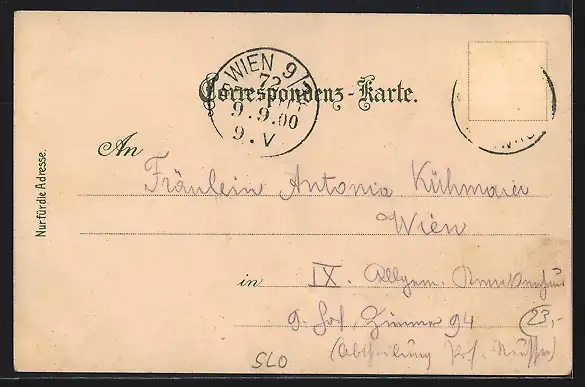 WIEN 9/
72
Correspondenz-Karte.
9.9.00
9.V
An
Nur für die Adresse.
Fräulein Antonia Kühmaier
Wien
in IX. Allgem. Krankenhaus
9. Hof, Zimmer 94 23,-
(Abtheilung Prf.
SLO